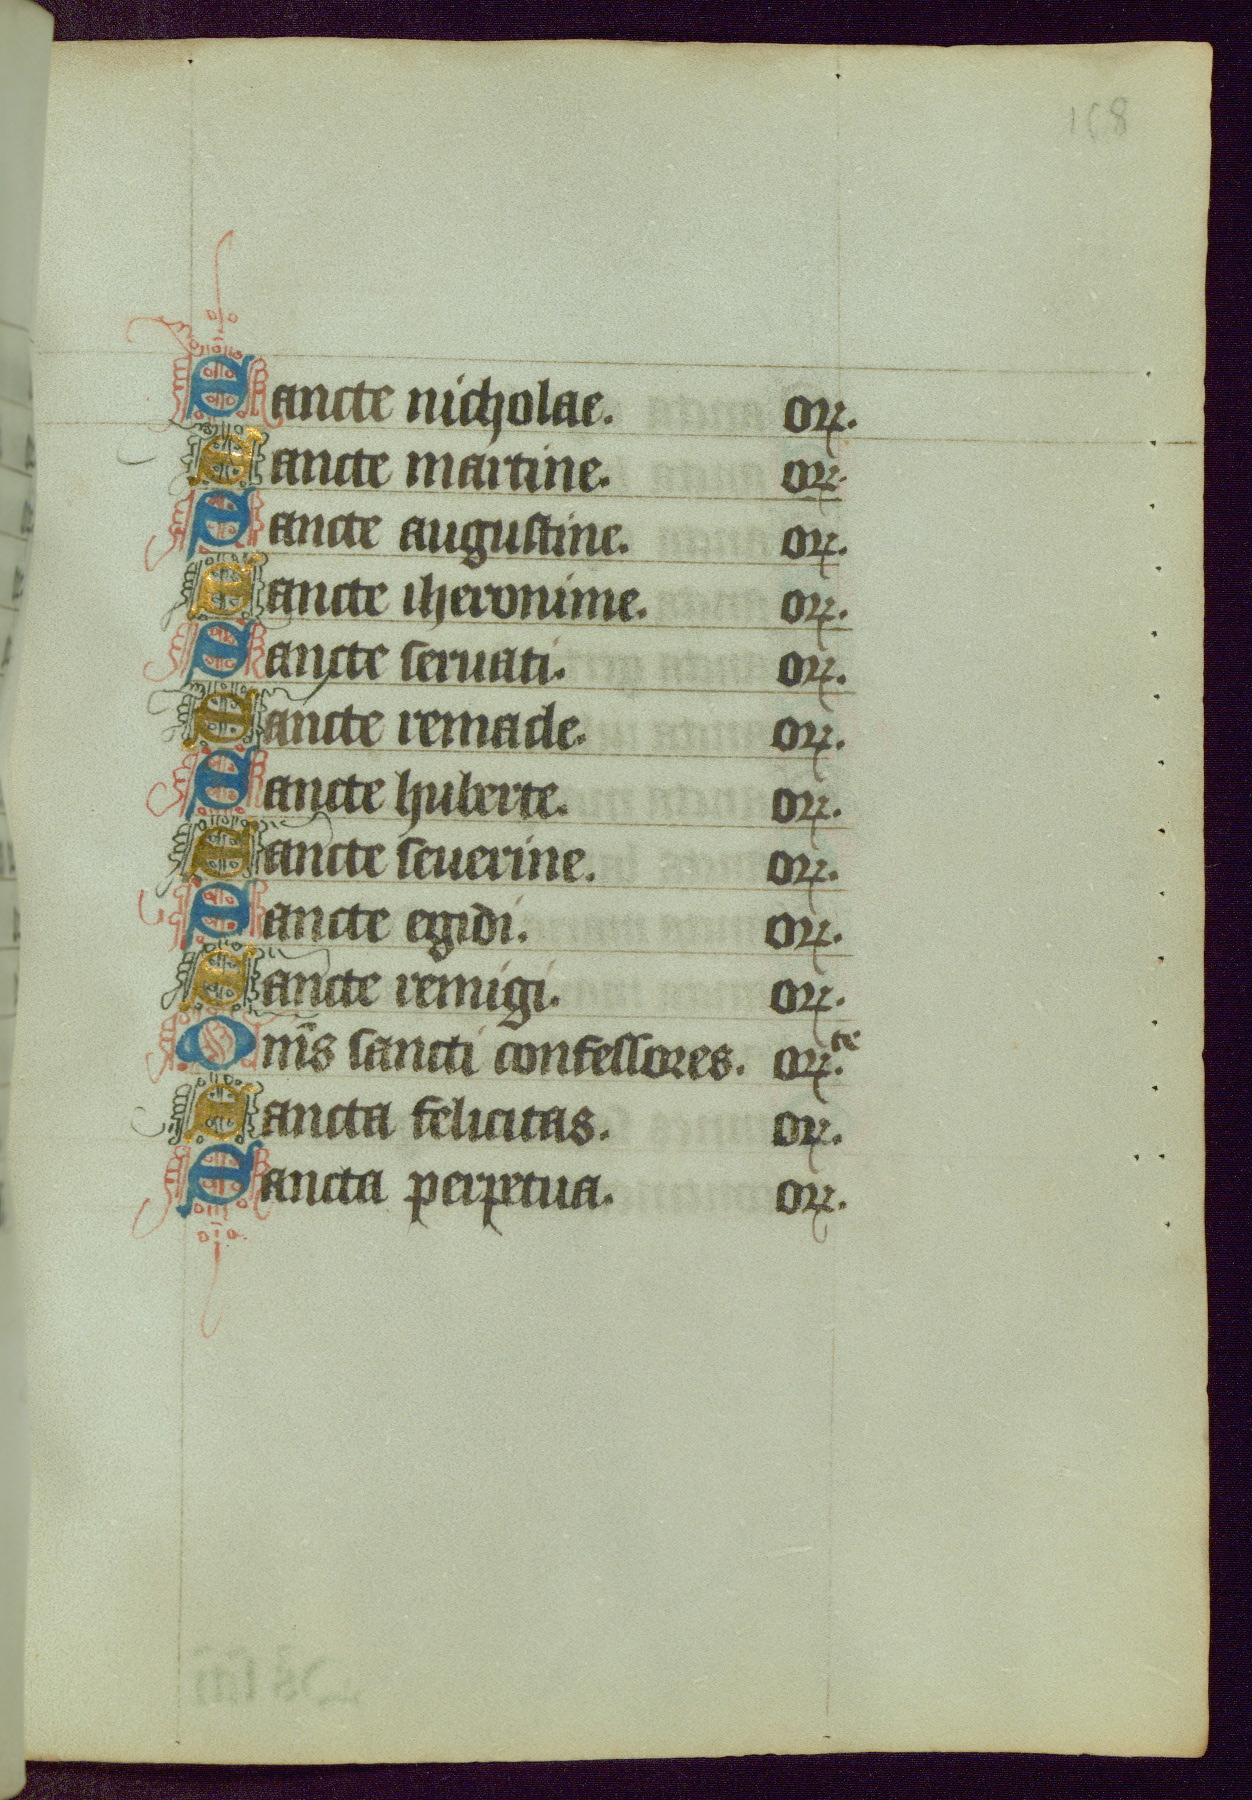 168
Sancte nicholae. or.
Sancte martine. or.
Sancte augustine. or.
Sancte iheronime. or.
Sancte seruati. or.
Sancte remacle. or.
Sancte huberte. or.
Sancte seuerine. or.
Sancte egidi. or.
Sancte remigi. or.
Om̄s sancti confessores. or.te
Sancta felicitas. or.
Sancta perpetua. or.